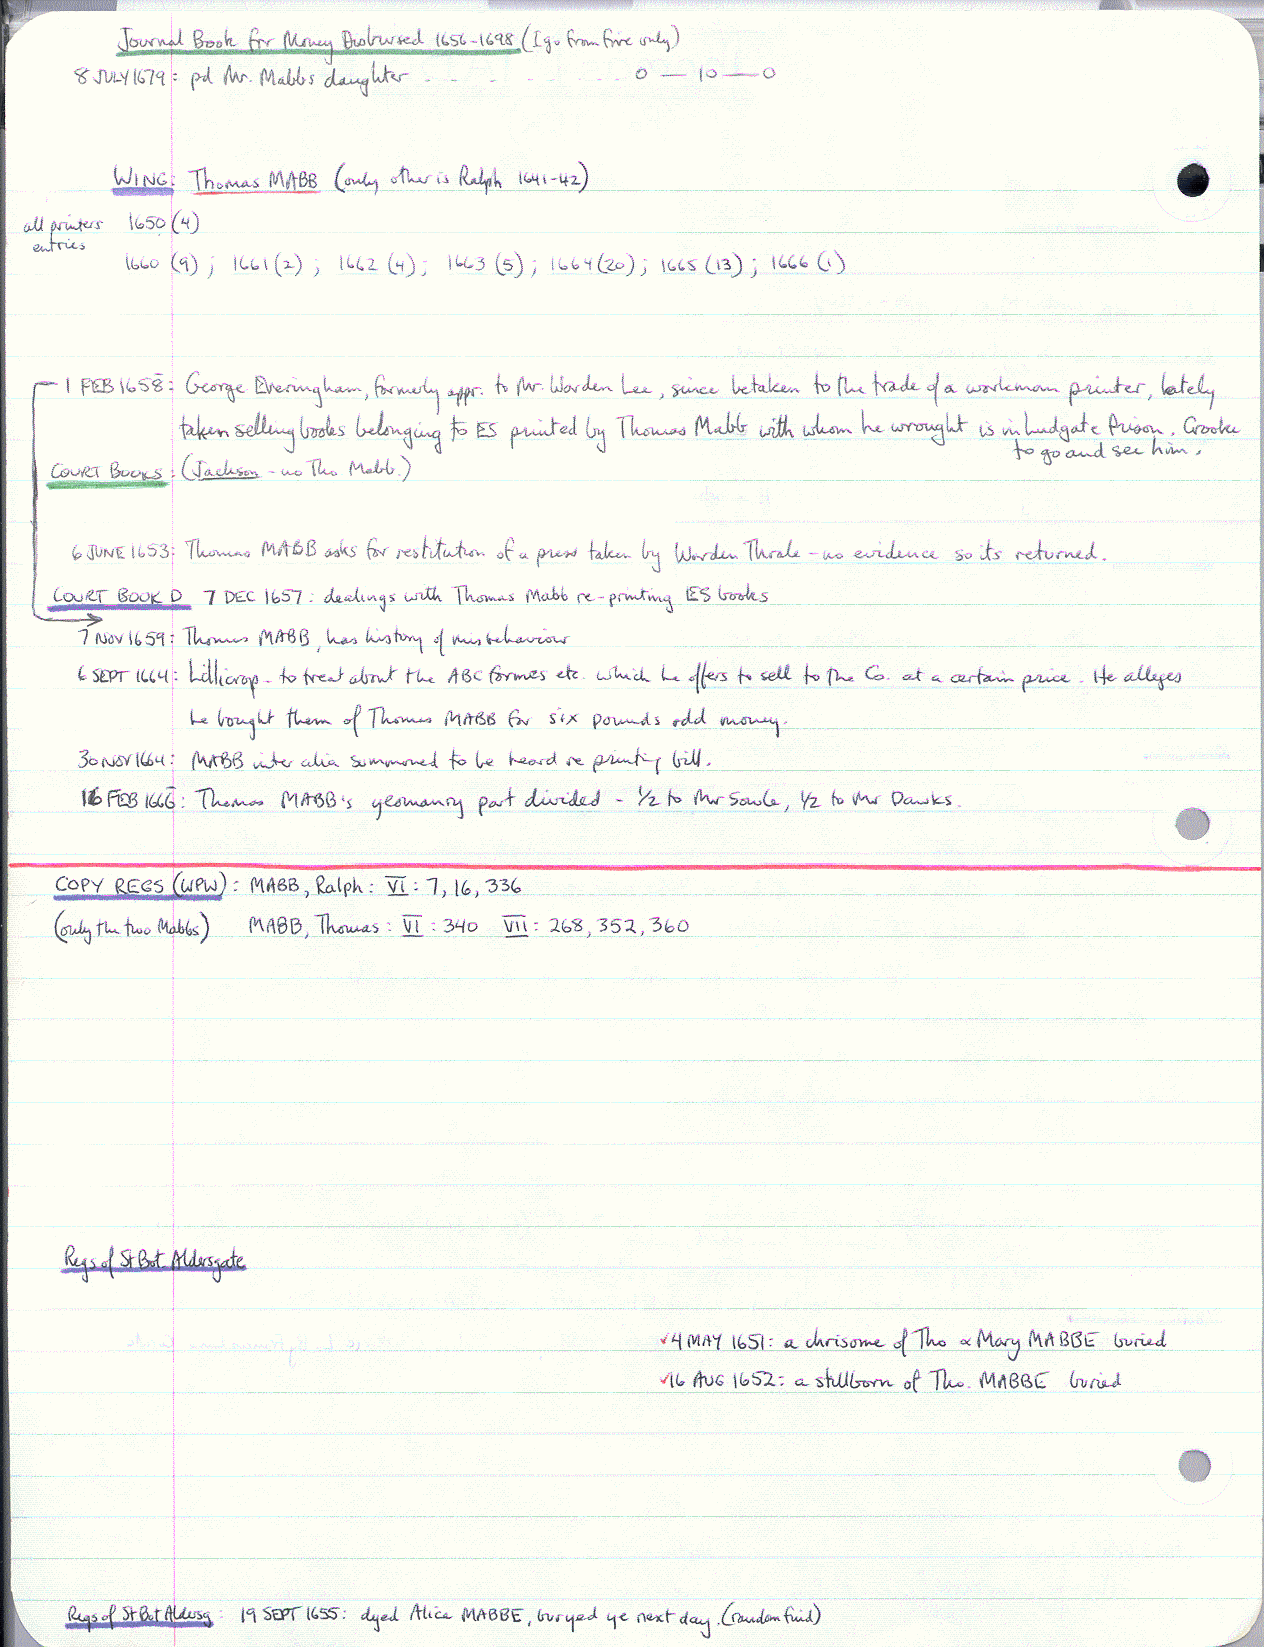 Journal Book for Money Disbursed 1656-1698 (I go from five only)
8 JULY 1679: pd Mr. Mabbs daughter - - - - - - - - 0 — 10 — 0
WING: Thomas MABB (only other is Ralph 1641-42)
all printers entries
1650 (4)
1660 (9); 1661 (2); 1662 (4); 1663 (5); 1664 (20); 1665 (13); 1666 (1)
1 FEB 1658: George Everingham, formerly appr. to Mr. Warden Lee, since betaken to the trade of a workman printer, lately
taken selling books belonging to ES printed by Thomas Mabb with whom he wrought is in Ludgate Prison. Crooke
to go and see him.
COURT BOOKS: (Jackson - no Tho Mabb.)
6 JUNE 1653: Thomas MABB asks for restitution of a press taken by Warden Thrale - no evidence so its returned.
COURT BOOK D 7 DEC 1657: dealings with Thomas Mabb re-printing ES books
7 NOV 1659: Thomas MABB, has history of misbehaviour
6 SEPT 1664: Lillicrop - to treat about the ABC formes etc. which he offers to sell to the Co. at a certain price. He alleges
he bought them of Thomas MABB for six pounds odd money.
30 NOV 1664: MABB inter alia summoned to be heard re printing bill.
16 FEB 1666: Thomas MABB's yeomanry part divided - ½ to Mr Sowle, ½ to Mr Dawks.
COPY REGS (WPW): MABB, Ralph: VI: 7, 16, 336
(only the two Mabbs) MABB, Thomas: VI: 340 VII: 268, 352, 360
Regs of St Bot Aldersgate
✓4 MAY 1651: a chrisome of Tho & Mary MABBE buried
✓16 AUG 1652: a stillborn of Tho. MABBE buried
Regs of St Bot Aldersg: 19 SEPT 1655: dyed Alice MABBE, buryed ye next day. (random find)